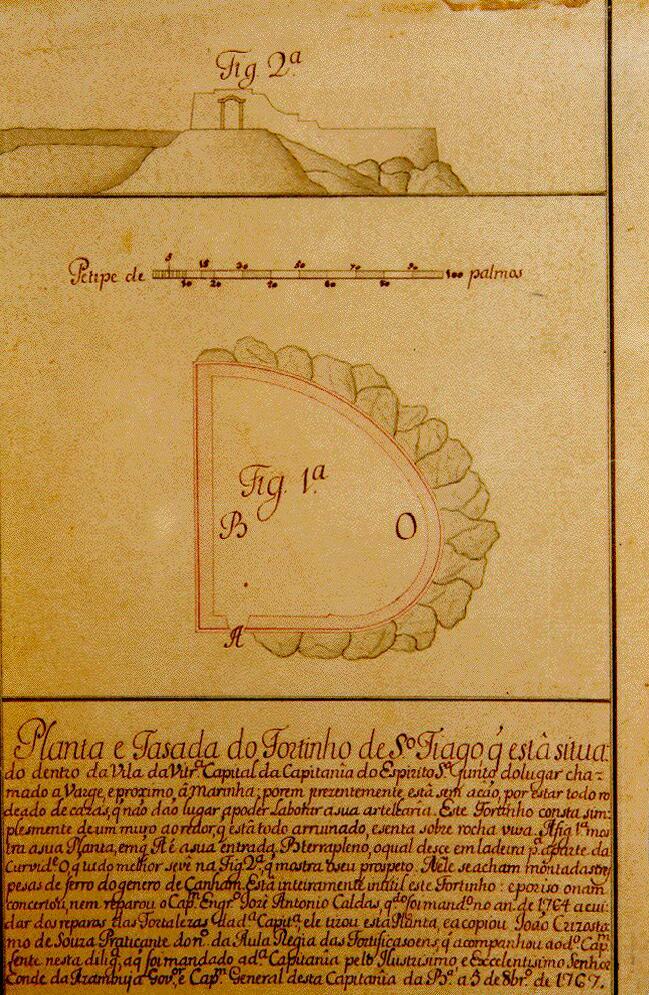 Fig. 2ª
Petipe de 5 10 15 20 30 40 50 60 70 80 90 100 palmos
Fig. 1ª
B O
A
Planta e Fasada do Fortinho de Sº Tiago q̃ está situa:
do dentro da Vila da Vitrª Capital da Capitania do Espirito Stº junto do lugar cha=
mado a Varge, e proximo, á Marinha; porem prezentemente está sem acção, por estar todo ro
deado de cazas, q̃ não dão lugar a poder Laborar a sua artelharia. Este Fortinho consta sim=
plesmente de um muro ao redor, q̃ está todo arruinado, e senta sobre rocha viva. A fig 1ª mos
tra a sua Planta, em q̃ A é a sua entrada, B terrapleno, o qual desce em ladera pª aparte da
Curvidᵉ O, q̃ tudo melhor se vê na Fig 2ª, q̃ mostra o seu prospeto. Nele se acham montadas tres
pesas de ferro do genero de Canham. Está inteiramente inutil este Fortinho: e por iso o nam
concertou, nem reparou o Capᵐ Engrº José Antonio Caldas, qdº foi mandº no an. de 1764 a cui
dar dos reparos das Fortalezas da dª Capitª, ele tirou esta Planta, e a copiou João Crizosto
mo de Souza Praticante do nº da Aula Regia das Fortificasoens, q̃ acompanhou ao dº Cap.
Lente nesta diligª, aq̃ foi mandado a dª Capitania pelo Ilustrisimo e Excelentisimo Senhor
Conde da Azambuja Govᵒʳ e Capᵐ General desta Capitania da Bª a 3 de 8brº de 1767.